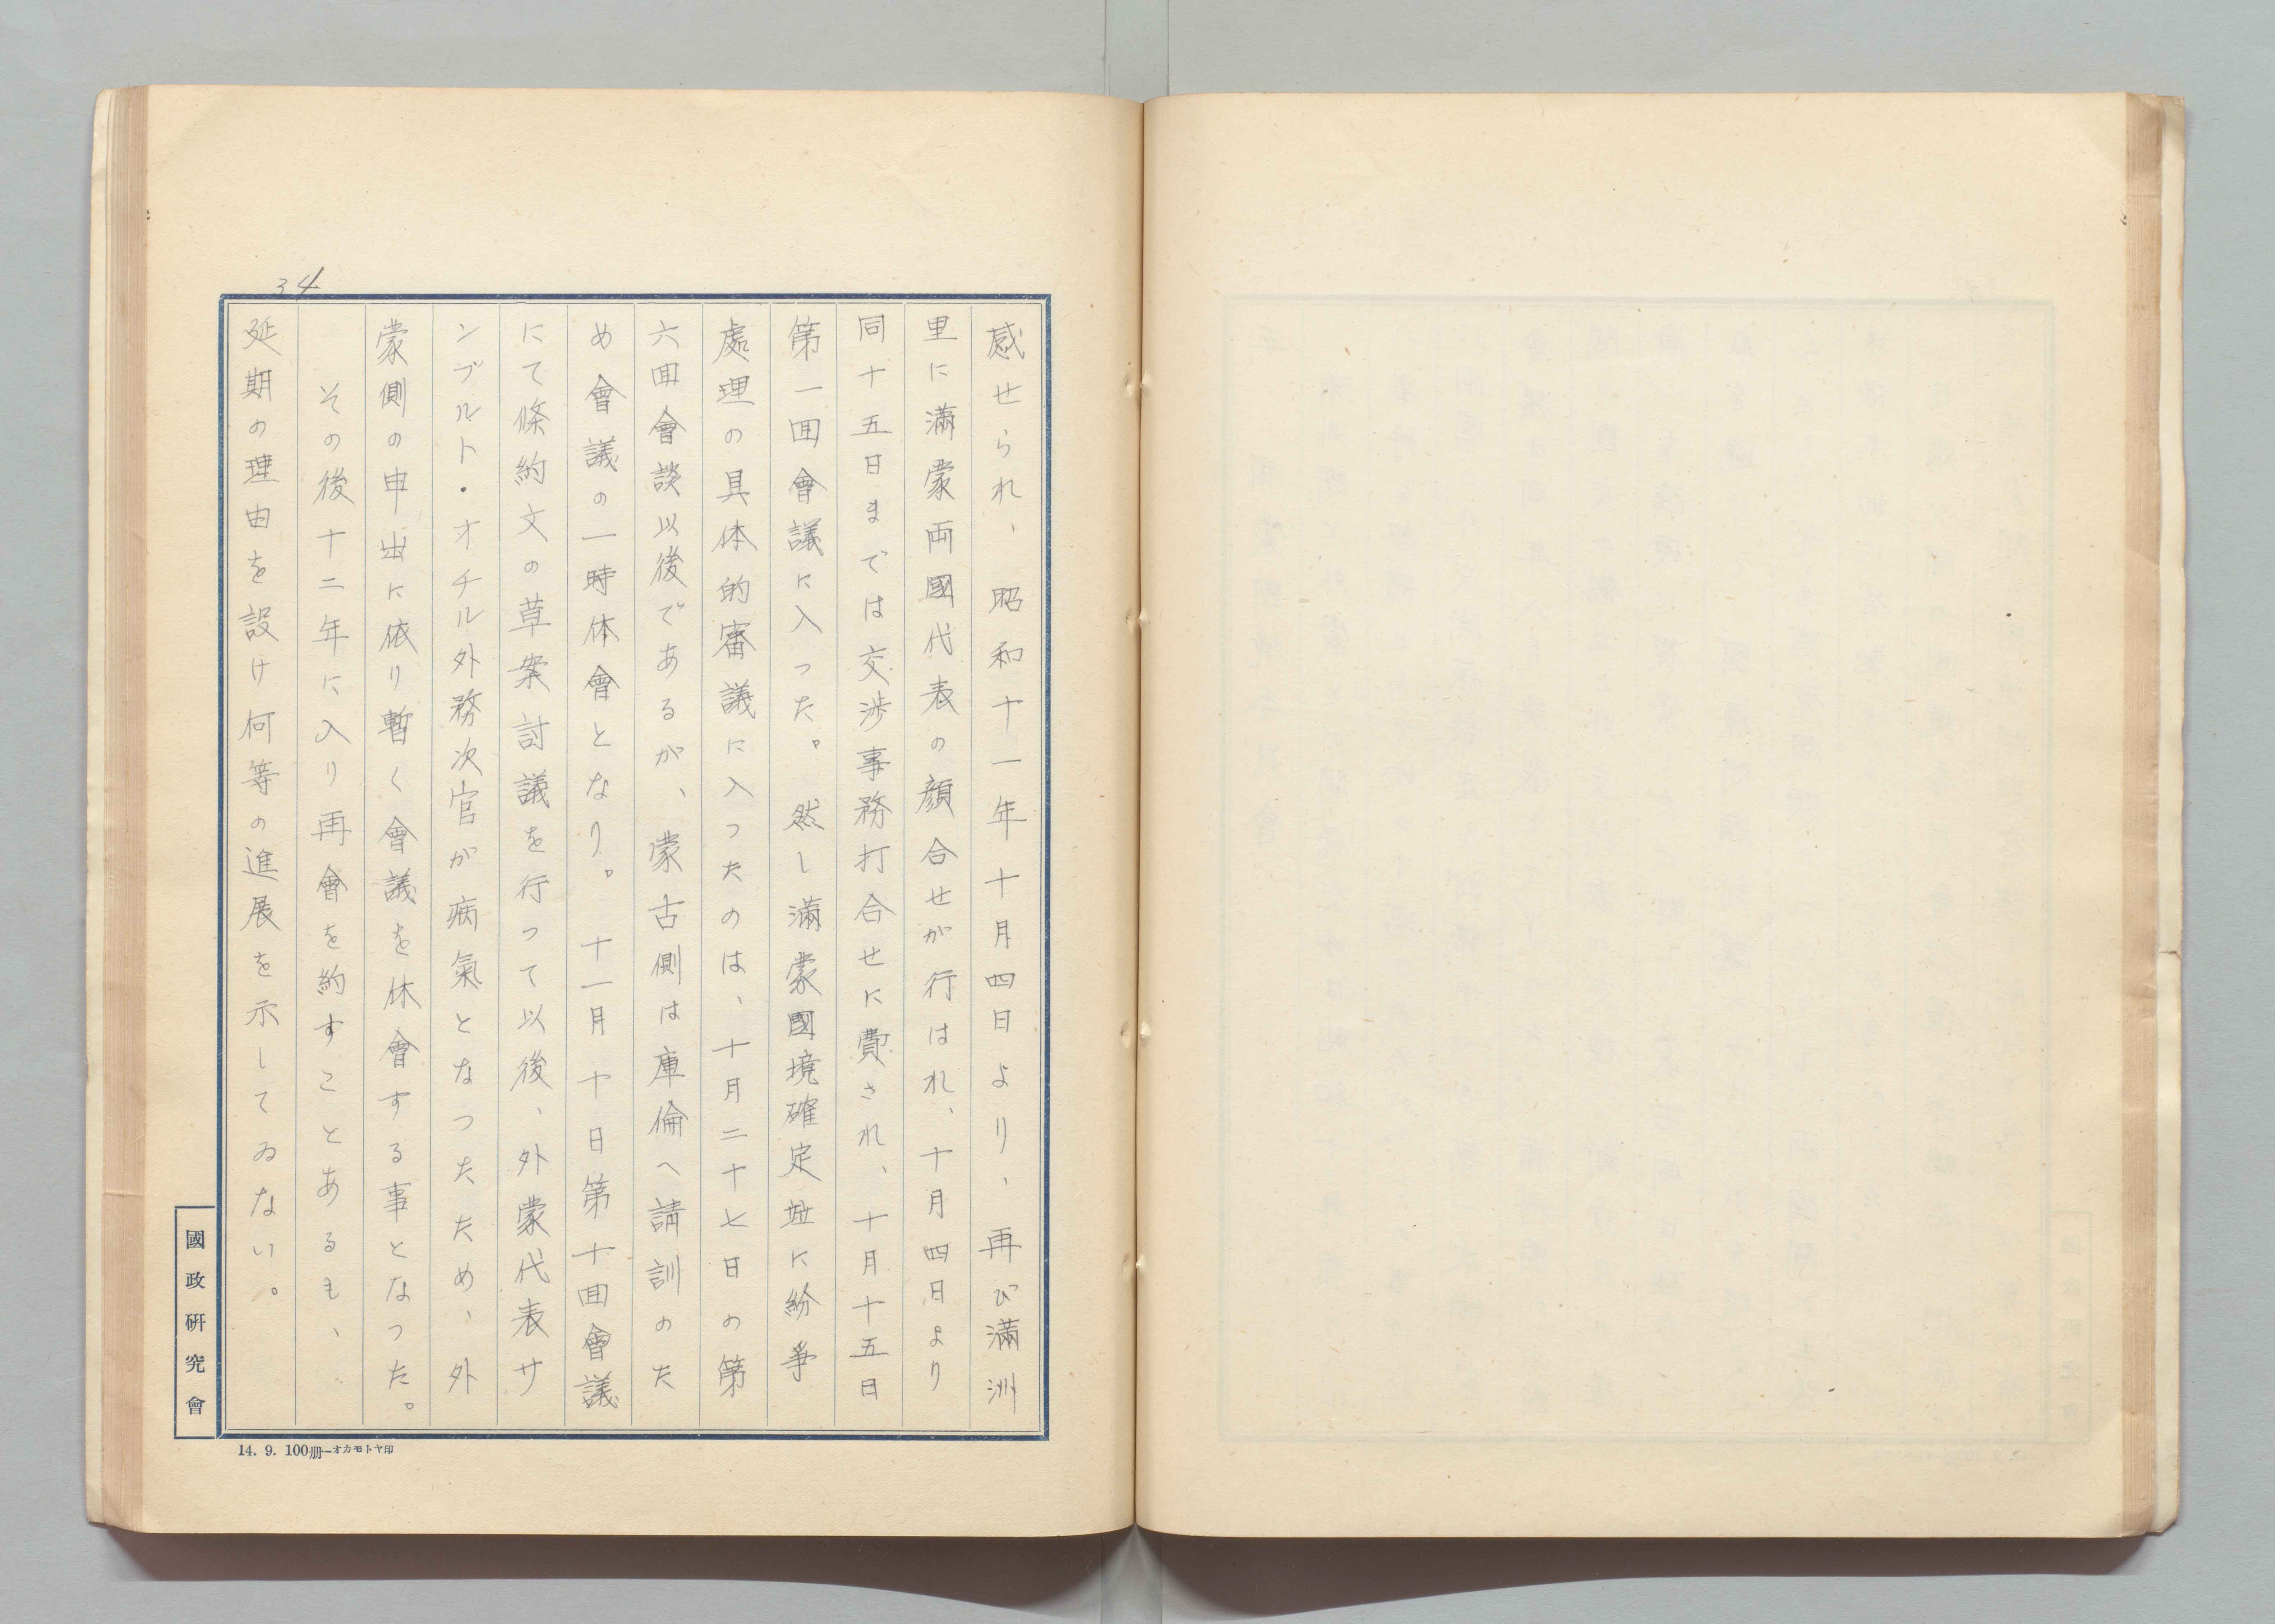 34
感せられ、昭和十一年十月四日より、再び満洲
里に満蒙両國代表の顔合せが行はれ、十月四日より
同十五日までは交渉事務打合せに費され、十月十五日
第一囬會議に入った。然し満蒙國境確定並に紛爭
處理の具体的審議に入ったのは、十月二十七日の第
六囬會談以後であるが、蒙古側は庫倫へ請訓のた
め會議の一時体會となり。十一月十日第十囬會議
にて條約文の草案討議を行って以後、外蒙代表サ
ンブルト・オチル外務次官が病氣となつたため、外
蒙側の申出に依り暫く會議を休會する事となつた。
その後十二年に入り再會を約すことあるも、
延期の理由を設け何等の進展を示してゐない。
國政硏究會
14. 9. 100册—オカモトヤ印